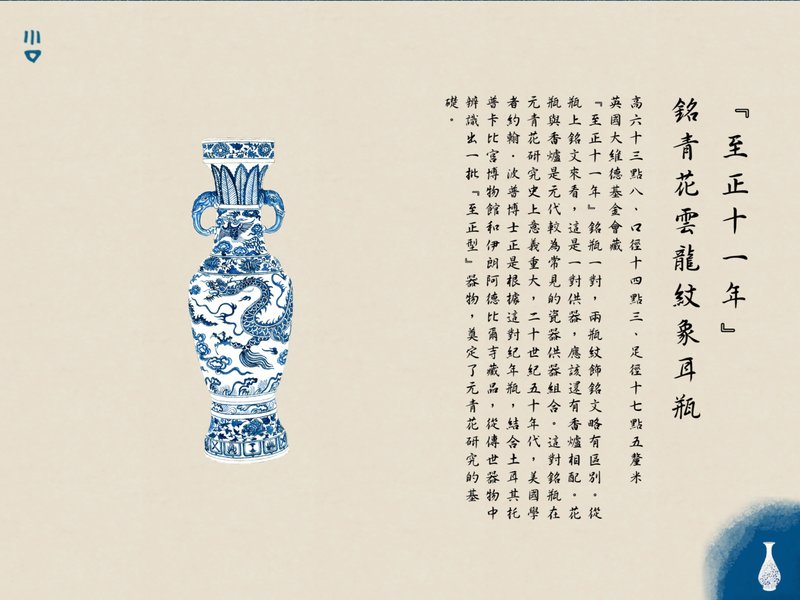 『至正十一年』
銘青花雲龍紋象耳瓶
高六十三點八、口徑十四點三、足徑十七點五釐米
英國大維德基金會藏
『至正十一年』銘瓶一對，兩瓶紋飾銘文略有區別。從
瓶上銘文來看，這是一對供器，應該還有香爐相配。花
瓶與香爐是元代較為常見的瓷器供器組合。這對銘瓶在
元青花研究史上意義重大，二十世紀五十年代，美國學
者約翰·波普博士正是根據這對紀年瓶，結合土耳其托
普卡比宮博物館和伊朗阿德比爾寺藏品，從傳世器物中
辨識出一批『至正型』器物，奠定了元青花研究的基
礎。